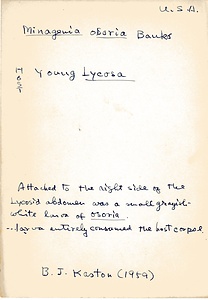 U.S.A.
Minagenia osoria Banks
HOST
Young Lycosa
Attached to the right side of the
Lycosid abdomen was a small grayish-
white larva of osoria.
...larva entirely consumed the host corpse.
B. J. Kaston (1959)